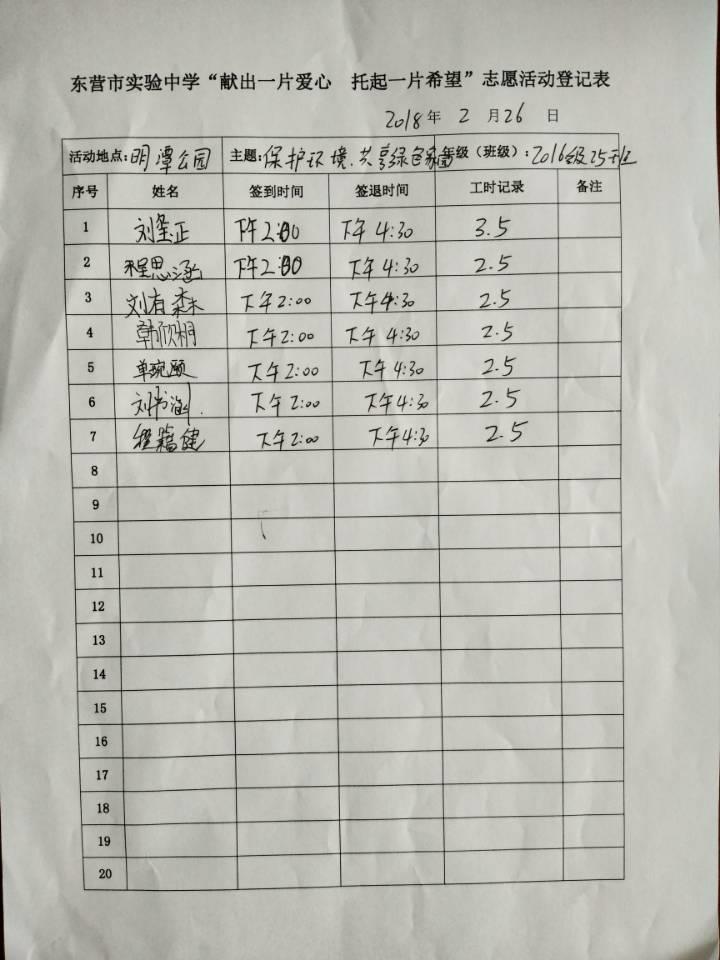 东营市实验中学“献出一片爱心 托起一片希望”志愿活动登记表
2018年 2 月26 日
活动地点:明潭公园 主题:保护环境.共享绿色家园 年级（班级）:2016级25班
序号 姓名 签到时间 签退时间 工时记录 备注
1 刘玺正 下午2:00 下午4:30 3.5
2 程思涵 下午2:00 下午4:30 2.5
3 刘有森 下午2:00 下午4:30 2.5
4 韩欣桐 下午2:00 下午4:30 2.5
5 单琬颐 下午2:00 下午4:30 2.5
6 刘书涵 下午2:00 下午4:30 2.5
7 下午2:00 下午4:30 2.5
8
9
10
11
12
13
14
15
16
17
18
19
20